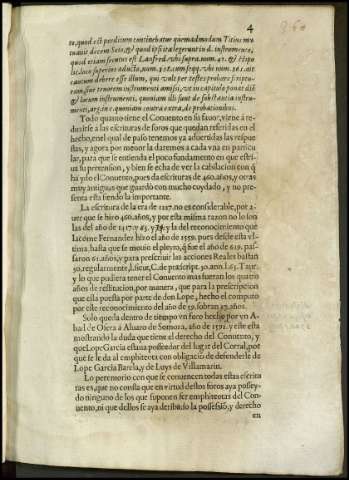 4
to, quod est perditum continebatur quemadmodum Titius mu
tuavit decem Seio, & quod ipsi ita legerunt in d. instrumento,
quod etiam secutus est Lanfred. ubi supra, num. 41. & Hipo
caveant debere esse illum, qui vult per testes probare scriptu
ram, sive tenorem instrumenti amissi, ut in capitulo ponat diẽ
& locum instrumenti, quoniam illi sunt de substantia instru
menti, arg. in c. quoniam contra extra, de probationibus.
Todo quanto tiene el Conuento en su fauor, viene a re-
duzirse a las escrituras de foros que quedan referidas en el
hecho, en el qual de passo tenemos ya aduertidas las respue
stas, y agora por menor la daremos a cada vna en particu
lar, para que se entienda el poco fundamento en que estri-
ua su pretension, y bien se echa de ver la cabilacion con q̃
ha ydo el Conuento, pues da escrituras de 460. años, y otras
muy antiguas que guardò con mucho cuydado, y no pre-
senta esta siendo la importante.
La escritura de la era de 1227. no es considerable, por a-
uer que se hizo 460. años, y por esta misma razon no lo son
las del año de 1417. y 85. y la del reconocimiento que
Iacome Fernandez hizo el año de 1559. pues desde esta vl-
tima, hasta que se mouio el pleyto, q̃ fue el año de 619. pas-
saron 61. años, y para prescriuir las acciones Reales bastan
30. regularmente, l. sicut, C. de præscript. 30. ann. l. 63. Taur.
y lo que pudiera tener el Conuento mas fueran los quatro
años de restitucion, por manera, que para la prescripcion
que esta puesta por parte de don Lope, hecho el computo
por este reconocimiento del año de 59. sobran 27. años.
Solo queda dentro de tiempo vn foro hecho por vn A
bad de Osera a Aluaro de Somoza, año de 1591. y este esta
mostrando la duda que tiene el derecho del Conuento, y
que Lope Garcia estaua posseedor del lugar del Corral, por
que se le da al emphiteota con obligaciõ de defenderle de
Lope Garcia Barela, y de Luys de Villamarin.
Lo peremtorio con que se conuencen todas estas escritu
ras es, que no consta que en virtud destos foros aya posseý-
do ninguno de los que suponen ser emphiteotas del Con-
uento, ni que dellos se aya deribado la possessiõ, y derecho
en